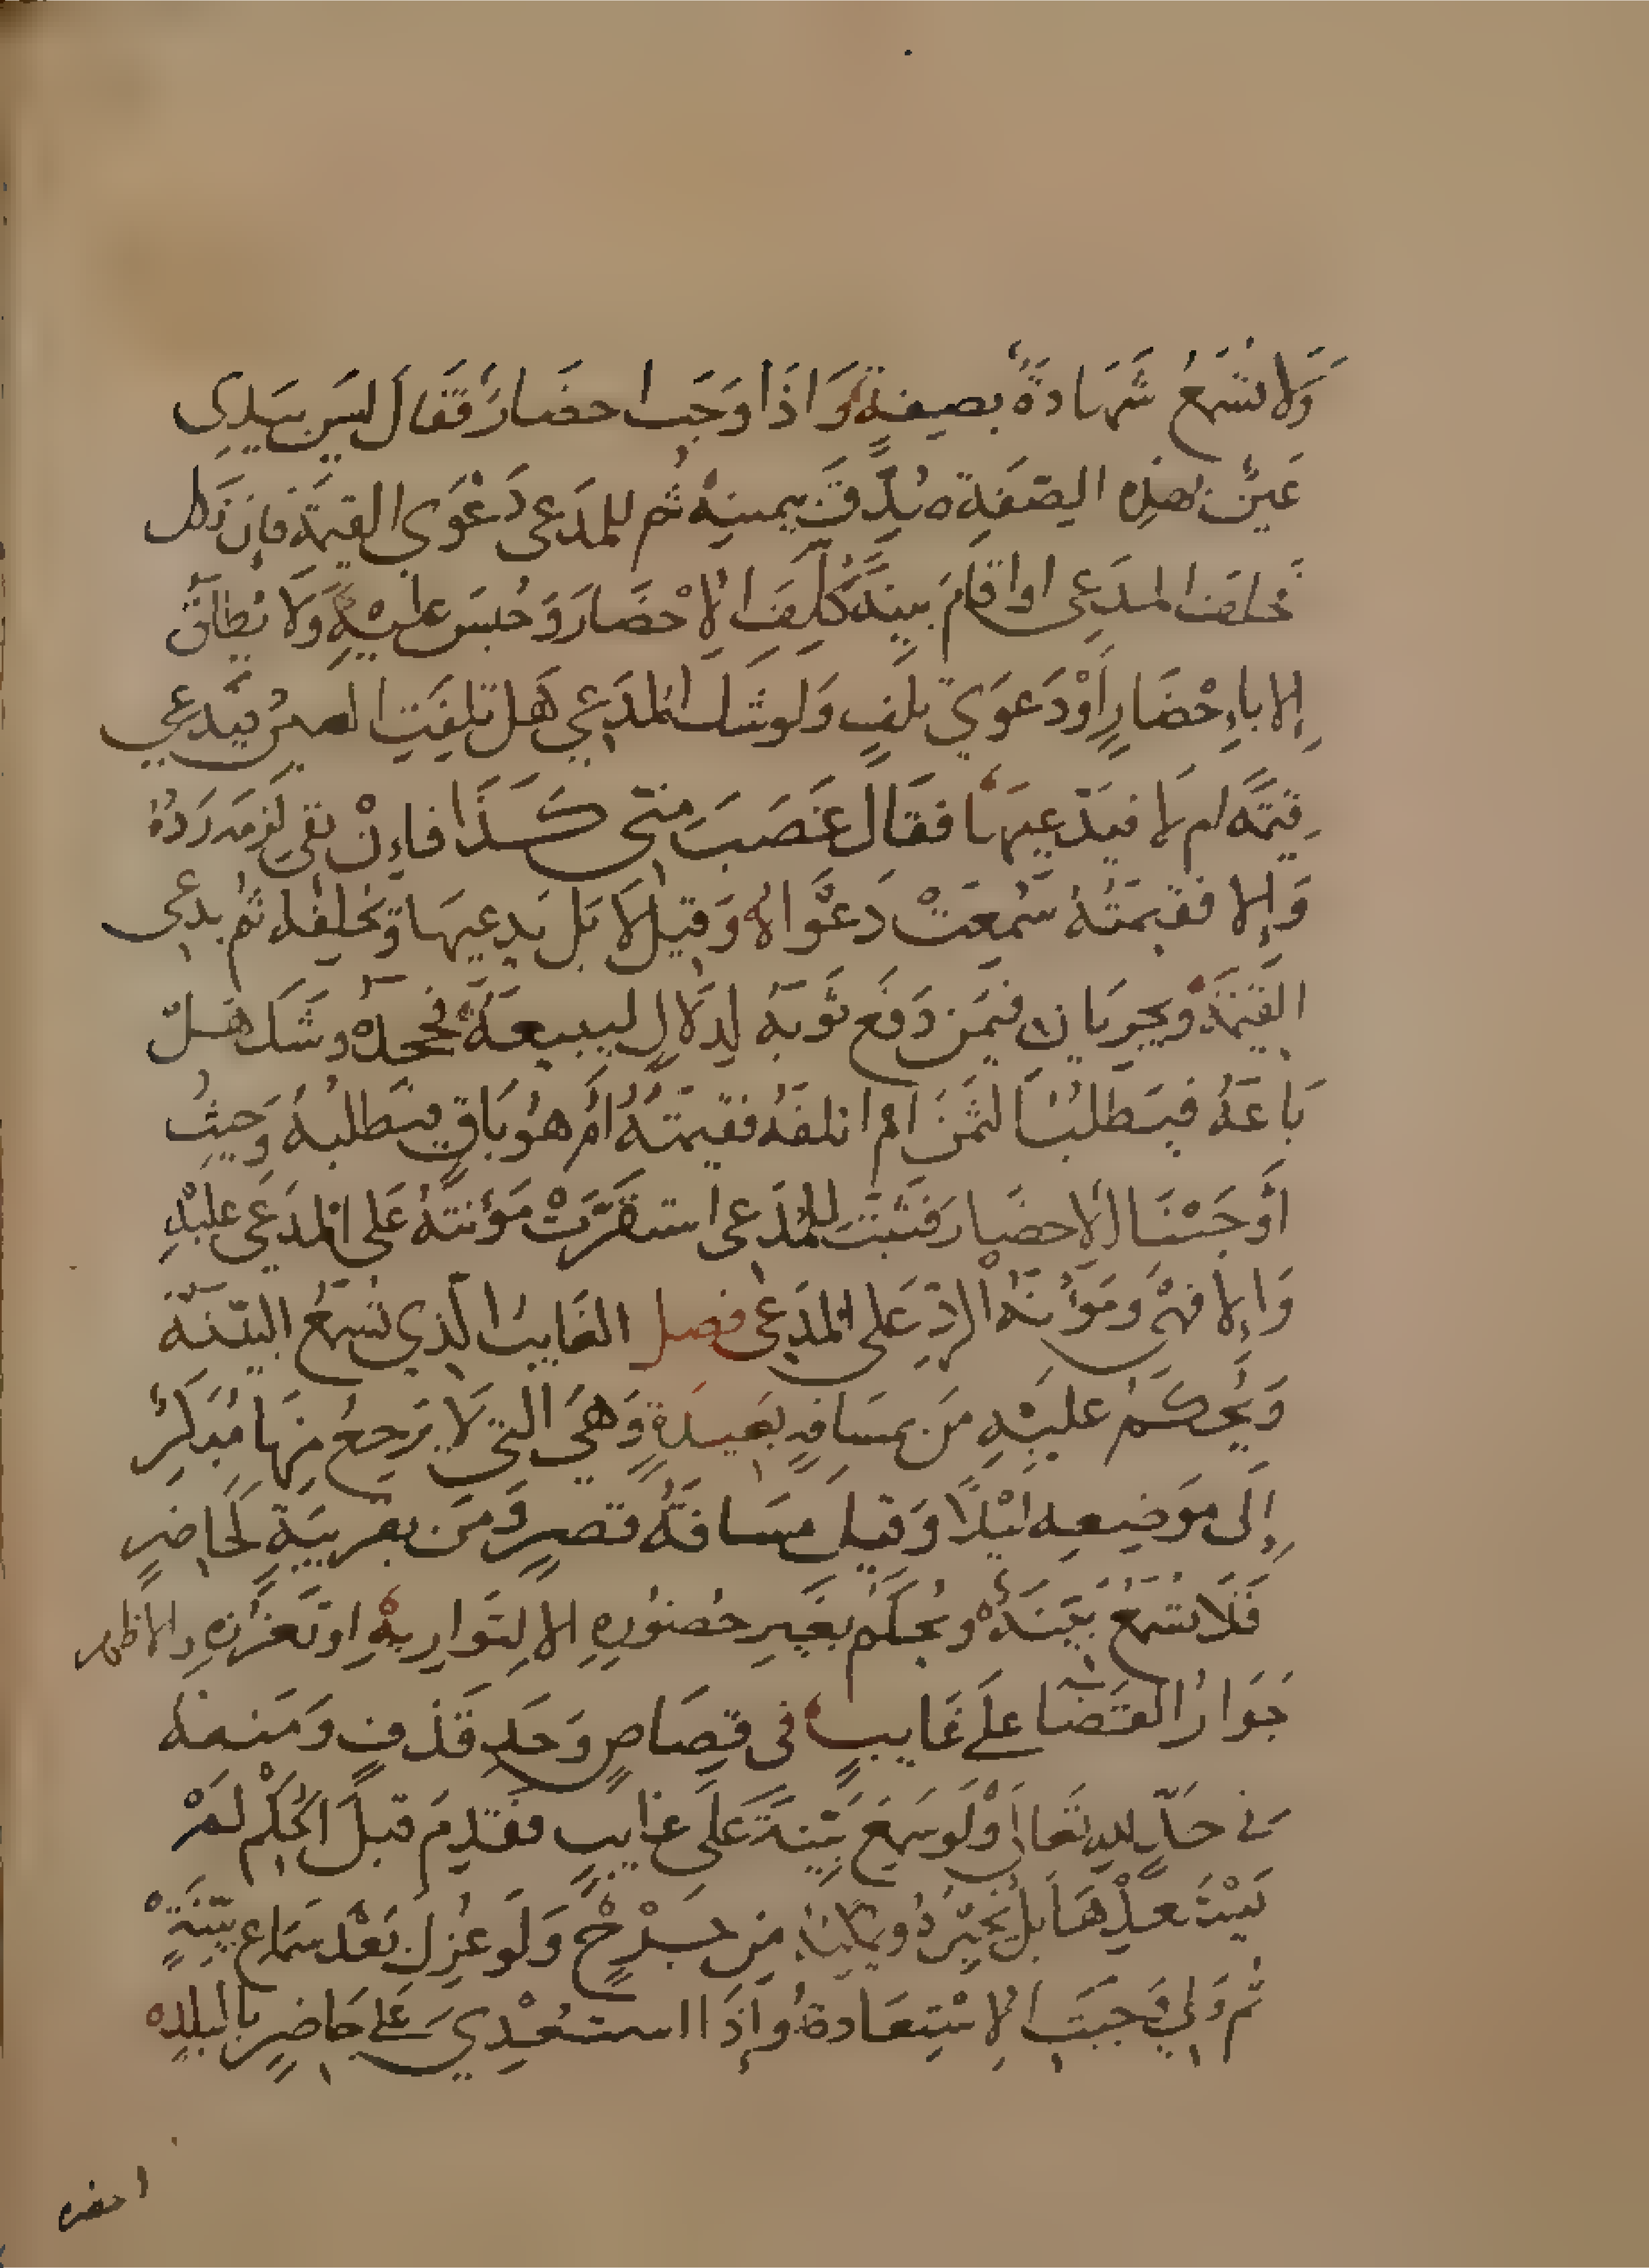 وَلَا تُسْمَعُ شَهَادَةٌ بصِفَةٍ وَاذَا وَجَبَ احضَارٌ فَقَالَ ليَسَ بيَدِي
عَيْنٌ بهذِهِ الصّفَةِ صُدِّقَ بيمينِهِ ثم للمدَعى دَعْوَى القيمَة فاِن نَكل
فحَلفَ المدَعى او اقامَ بينَةً كُلِّفَ الاِحْضَارَ وَحُبسَ عليْهِ وَلَا يُطلَقُ
إِلا باِحْضَارٍ اَوْ دَعوَي تلفٍ وَلو شك المدَعي هَل تلفَتِ العينُ فيَدعي
قيمَةً ام لا فيَدّعيهَا فقَالَ غصَبَ مِنّى كَذَا فاِنْ بقي لزمه رَدُهُ
وَاِلا فقيمَتُهُ سُمِعَتْ دَعْوَاهُ وَقيل لَا بَل يَدعيهَا وَيُحلفه ثم يدعى
القيمَةَ ويجريَانِ فيمَن دَفَع ثَوْبَهُ لِدَلالٍ ليبيعَهُ فجحدهُ وشَك هَلْ
بَاعَهُ فيَطلبُ الثمَنَ اَم اتلفَهُ فقيمَتَهُ اَمْ هوُ بَاقٍ فيَطلبهُ وَحَيثُ
أوْجَبْنَا الاِحضَارَ فثَبتَ للمُدَعى استقَرَّتْ مَؤُنتهُ عَلى المدَعَي عليْهِ
وَاِلا فهِيَ وَمَؤُنَةُ الردِّ عَلى المدَعى فصل الغَايبُ الَذي تُسْمَعُ البيّنَةُ
وَيُحكَمُ عليْهِ مَن بمسَافةٍ بَعيدَةٍ وَهيَ التي لَا يَرْجعُ مِنهَا مُبكِرٌ
اِلَى مَوْضِعِه ليْلًا وَقيلَ مسَافَةُ قصرٍ وَمَن بقَريبَةٍ كَحَاضِرٍ
فَلَا تسْمَعُ بَيّنَةٌ ويُحكَمُ بغَيرِ حُضُورِهِ الا لِتوَارِيهِ او تَعَزُّزِهِ والاظهر
جَوَازُ القَضَا علَى غَايبٍ فى قِصَاصٍ وَحَدِ قَذفٍ وَمَنعهُ
في حَدّ للهِ تعَالى وَلَو سَمِعَ بيّنةً عَلَى غايبٍ فقَدِمَ قبلَ الحُكْم لَمْ
يَسْتَعدْهَا بل يُخبرُهُ ويمكنهُ مِن جَرْحٍ وَلَو عُزِلَ بَعْدَ سَمَاعِ بيّنَةٍ
ثم وَلِيَ وَجبَتِ الاِسْتِعَادةُ وَاِذَا استُعْدِيَ عَلى حَاضِرٍ بالبلدِ
احضره